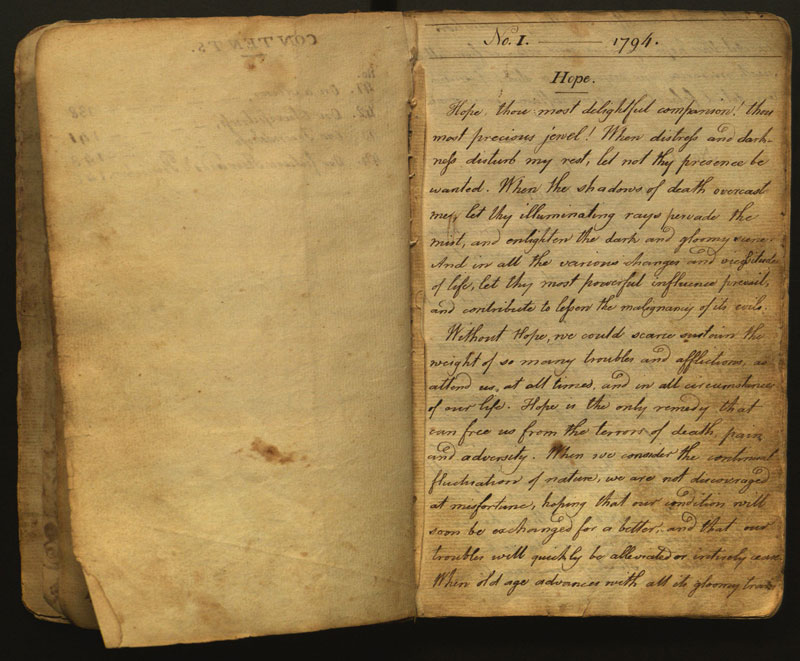 CONTENTS.
No. I. 1794.
Hope.
Hope, thou most delightful companion! thou
most precious jewel! When distress and dark-
ness disturb my rest, let not thy presence be
wanted. When the shadows of death overcast
me, let thy illuminating rays pervade the
mist, and enlighten the dark and gloomy scene.
And in all the various changes and vicissitudes
of life, let thy most powerful influence prevail,
and contribute to lessen the malignancy of its evils.
Without Hope, we could scarce sustain the
weight of so many troubles and afflictions, as
attend us, at all times, and in all circumstances
of our life. Hope is the only remedy that
can free us from the terrors of death, pain,
and adversity. When we consider the continual
fluctuation of nature, we are not discouraged
at misfortune, hoping that our condition will
soon be exchanged for a better; and that our
troubles will quickly be alleviated or intirely cease.
When old age advances with all its gloomy train